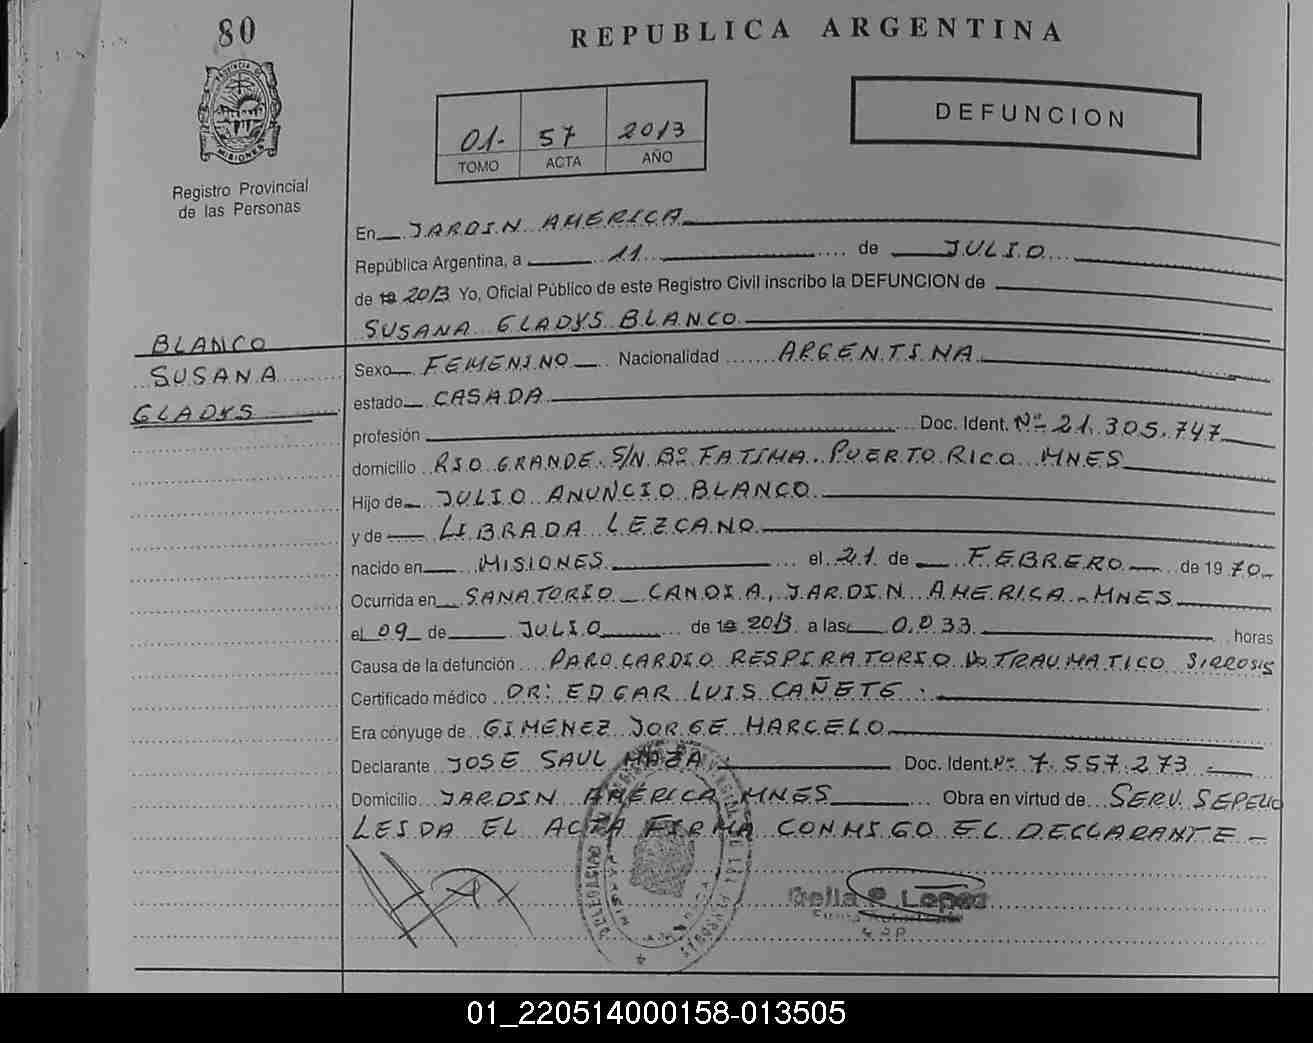 80
REPUBLICA ARGENTINA
PROVINCIA DE
MISIONES
Registro Provincial
de las Personas
01- 57 2013
TOMO ACTA AÑO
DEFUNCION
En JARDIN AMERICA
República Argentina, a 11 de JULIO
de 19 2013 Yo, Oficial Público de este Registro Civil inscribo la DEFUNCION de
SUSANA GLADYS BLANCO
BLANCO
SUSANA
GLADYS
Sexo FEMENINO Nacionalidad ARGENTINA
estado CASADA
profesión Doc. Ident. Nº 21.305.747
domicilio RIO GRANDE S/N Bº FATIMA PUERTO RICO MNES
Hijo de JULIO ANUNCIO BLANCO
y de LIBRADA LEZCANO
nacido en MISIONES el 21 de FEBRERO de 1970
Ocurrida en SANATORIO CANDIA, JARDIN AMERICA - MNES
el 09 de JULIO de 19 2013 a las 0833 horas
Causa de la defunción PARO CARDIO RESPIRATORIO NO TRAUMATICO SIRROSIS
Certificado médico DR: EDGAR LUIS CAÑETE
Era cónyuge de GIMENEZ JORGE MARCELO
Declarante JOSE SAUL MAZA Doc. Ident. Nº 7.557.273
Domicilio JARDIN AMERICA MNES Obra en virtud de SERV. SEPELIO
LEIDA EL ACTA FIRMA CONMIGO EL DECLARANTE -
Lopez
01_220514000158-013505